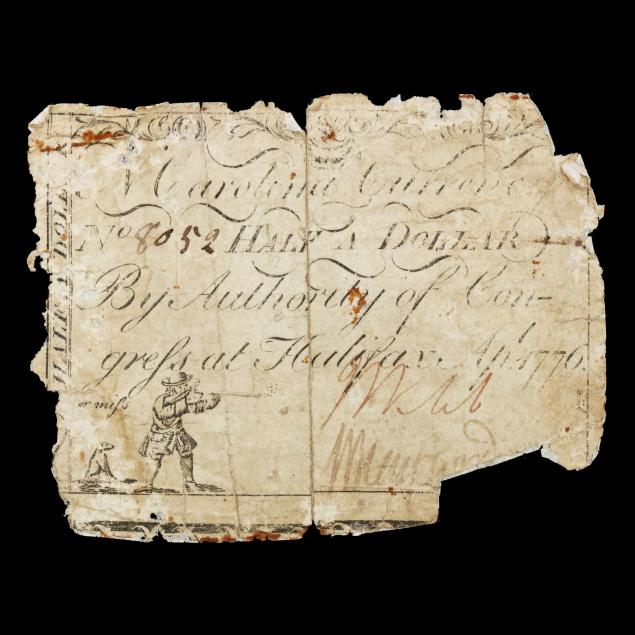 N Carolina Currenc
No 8052 HALF A DOLLAR
By Authority of Con-
greſs at Halifax Apl. 1776.
HALF A DOLL